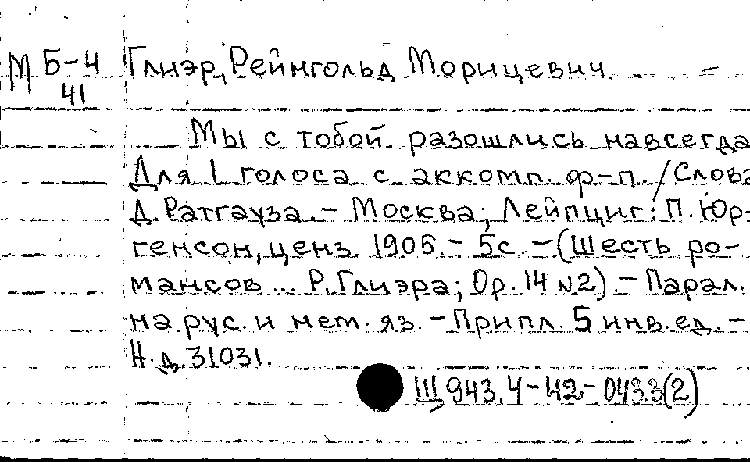 М Б-4 Глиэр, Рейнгольд Морицевич
41
Мы с тобой разошлись навсегда
Для 1 голоса с аккомп. ф-п. / Слова
Д. Ратгауза. - Москва; Лейпциг: П. Юр-
генсон, ценз. 1905. - 5с. - (Шесть ро-
мансов... Р. Глиэра; Op. 14 №2). - Парал.
на рус. и нем. яз. - Припл. 5 инв. ед. -
Н. д. 31031.
Щ 943.4-42-043.3(2)